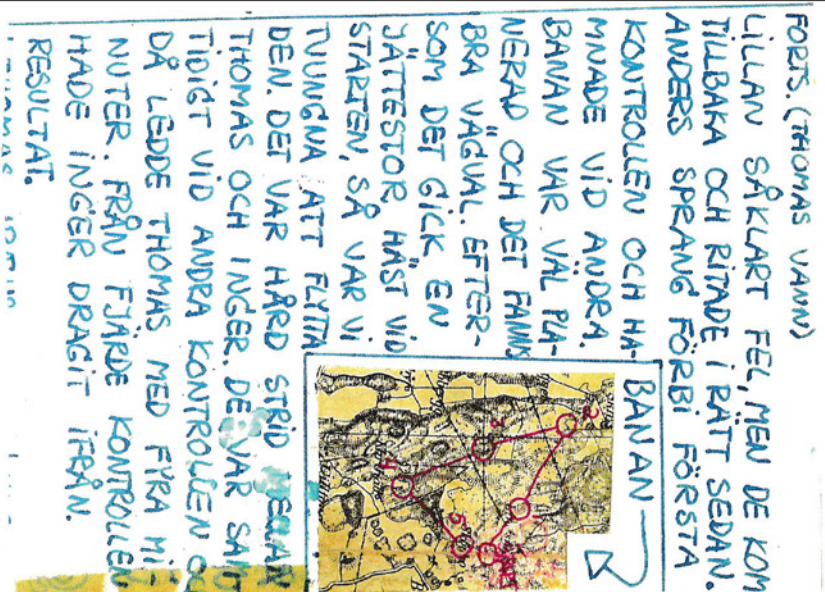 FORTS. (THOMAS VANN)
LILLAN SÅKLART FEL, MEN DE KOM
TILLBAKA OCH RITADE I RÄTT SEDAN.
ANDERS SPRANG FÖRBI FÖRSTA
KONTROLLEN OCH HA-
MNADE VID ANDRA.
BANAN VAR VÄL PLA-
NERAD OCH DET FANNS
BRA VÄGVAL. EFTER-
SOM DET GICK EN
JÄTTESTOR HÄST VID
STARTEN, SÅ VAR VI
TVUNGNA ATT FLYTTA
DEN. DET VAR HÅRD STRID MELLAN
THOMAS OCH INGER. DE VAR SAMT
TIDIGT VID ANDRA KONTROLLEN OC
DÅ LEDDE THOMAS MED FYRA MI-
NUTER. FRÅN FJÄRDE KONTROLLEN
HADE INGER DRAGIT IFRÅN.
RESULTAT.
BANAN
2
3
4
5